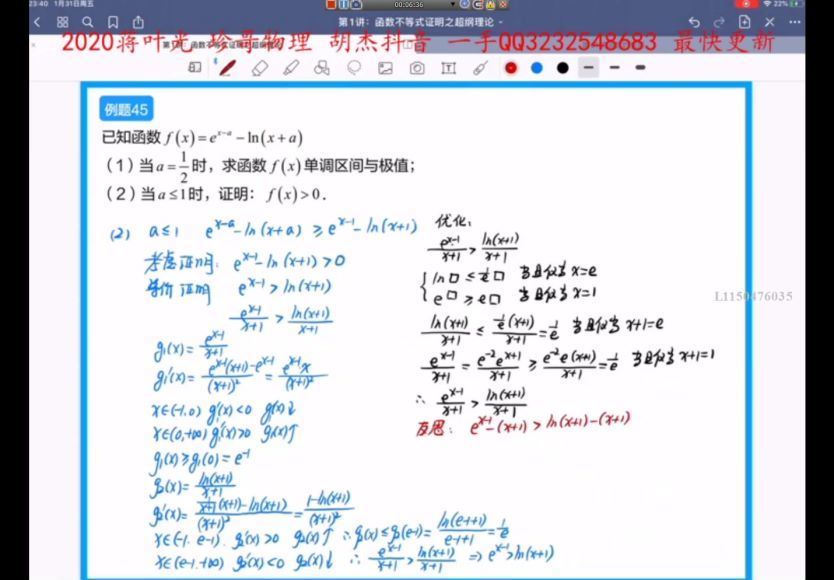 23:40 1月31日周五
00:06:36
22%
第1讲：函数不等式证明之超纲理论
2020蒋叶光 珍哥物理 胡杰抖音 一手QQ3232548683 最快更新
例题45
已知函数 f(x)=e^{x-a}-ln(x+a)
(1) 当 a=1/2 时，求函数 f(x) 单调区间与极值；
(2) 当 a≤1 时，证明：f(x)>0.
(2) a≤1 e^{x-a}-ln(x+a)≥e^{x-1}-ln(x+1)
考虑证明: e^{x-1}-ln(x+1)>0
等价证明 e^{x-1}>ln(x+1)
e^{x-1}/(x+1)>ln(x+1)/(x+1)
g₁(x)=e^{x-1}/(x+1)
g₁'(x)=(e^{x-1}(x+1)-e^{x-1})/(x+1)²=e^{x-1}x/(x+1)²
x∈(-1,0) g₁'(x)<0 g₁(x)↓
x∈(0,+∞) g₁'(x)>0 g₁(x)↑
g₁(x)≥g₁(0)=e^{-1}
g₂(x)=ln(x+1)/(x+1)
g₂'(x)=(1/(x+1)(x+1)-ln(x+1))/(x+1)²=(1-ln(x+1))/(x+1)²
x∈(-1,e-1) g₂'(x)>0 g₂(x)↑ ∴g₂(x)≤g₂(e-1)=ln(e-1+1)/(e-1+1)=1/e
x∈(e-1,+∞) g₂'(x)<0 g₂(x)↓ ∴e^{x-1}/(x+1)>ln(x+1)/(x+1) ⇒e^{x-1}>ln(x+1)
优化:
e^{x-1}/(x+1)>ln(x+1)/(x+1)
{ln□≤1/e□ 当且仅当 x=e
e^□≥e□ 当且仅当 x=1
ln(x+1)/(x+1)≤1/e(x+1)/(x+1)=1/e 当且仅当 x+1=e
e^{x-1}/(x+1)=e^{-2}e^{x+1}/(x+1)≥e^{-2}e(x+1)/(x+1)=1/e 当且仅当 x+1=1
∴ e^{x-1}/(x+1)>ln(x+1)/(x+1)
反思: e^{x-1}-(x+1)>ln(x+1)-(x+1)
L1150476035